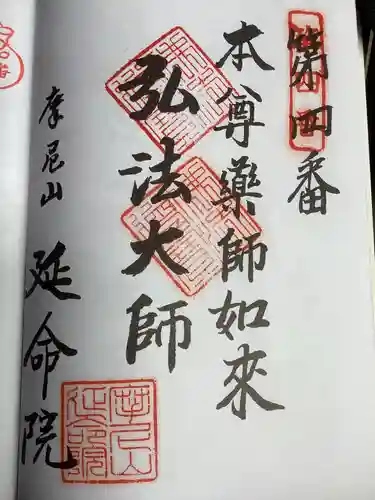 第四番
本尊藥師如來
弘法大師
摩尼山
延命院
摩尼山
延命院